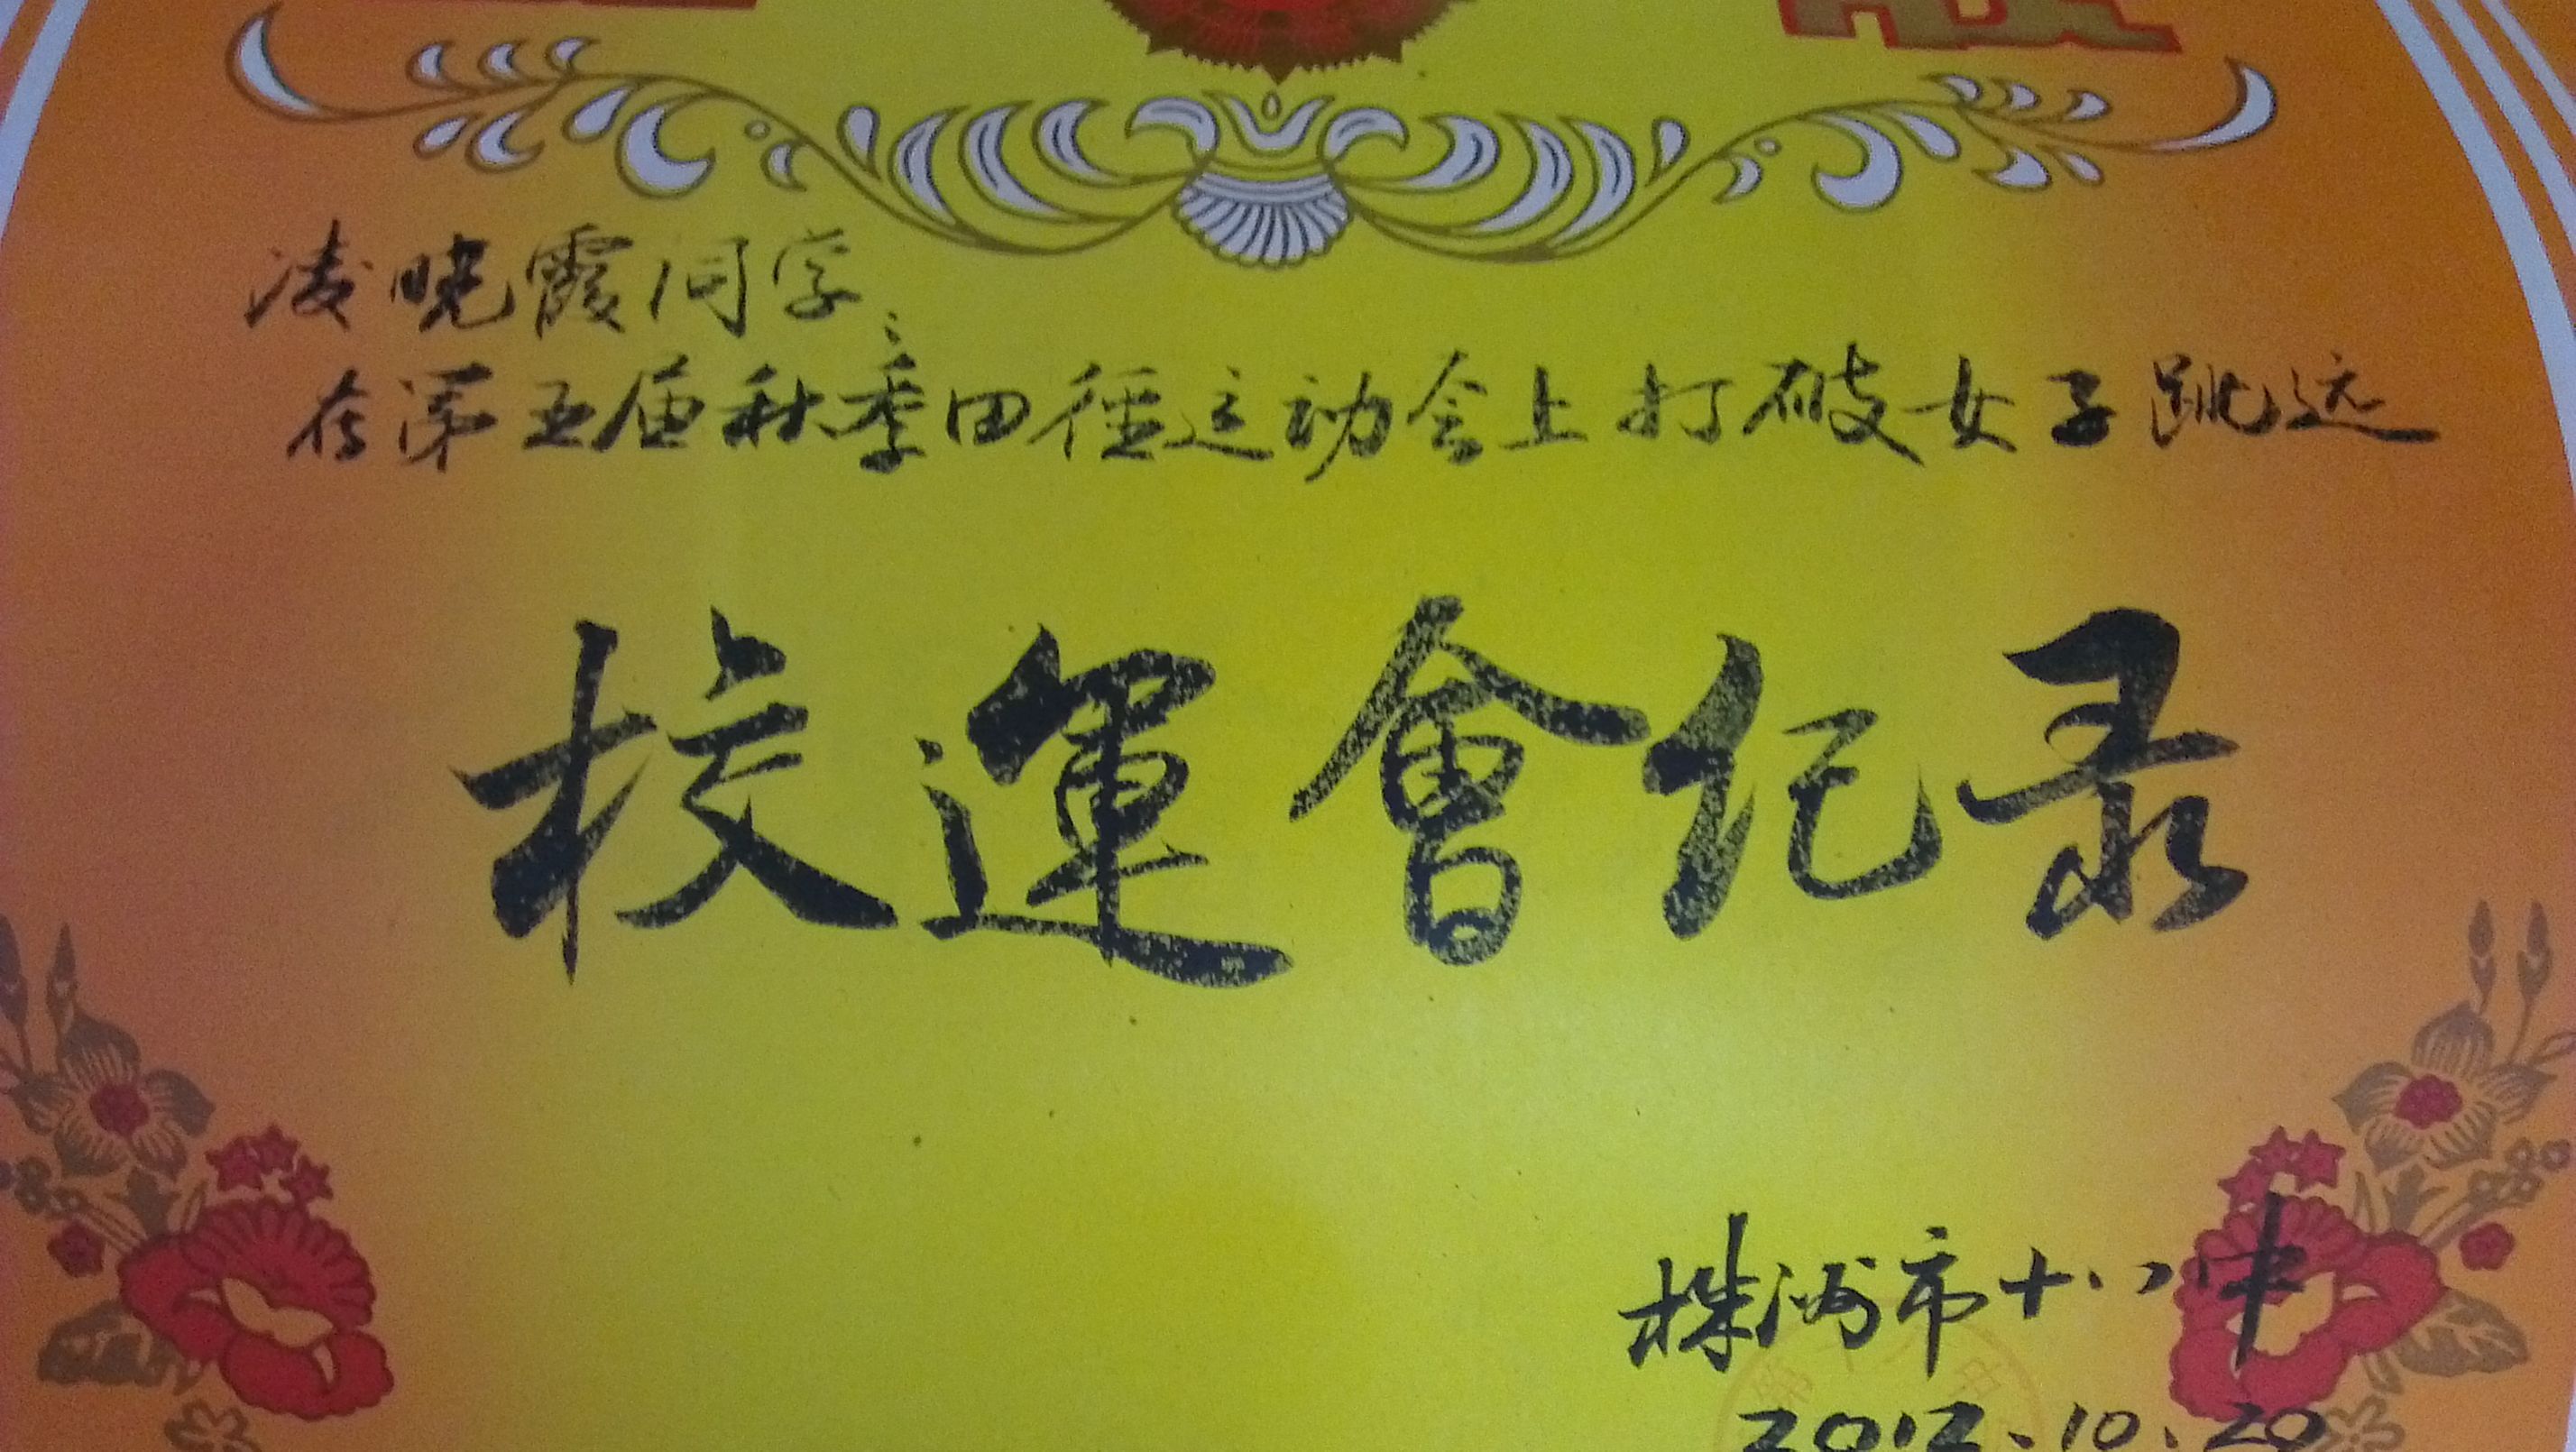 凌晓霞同学：
在第五届秋季田径运动会上打破女子跳远
校運會纪录
株洲市十八中
2012.10.20